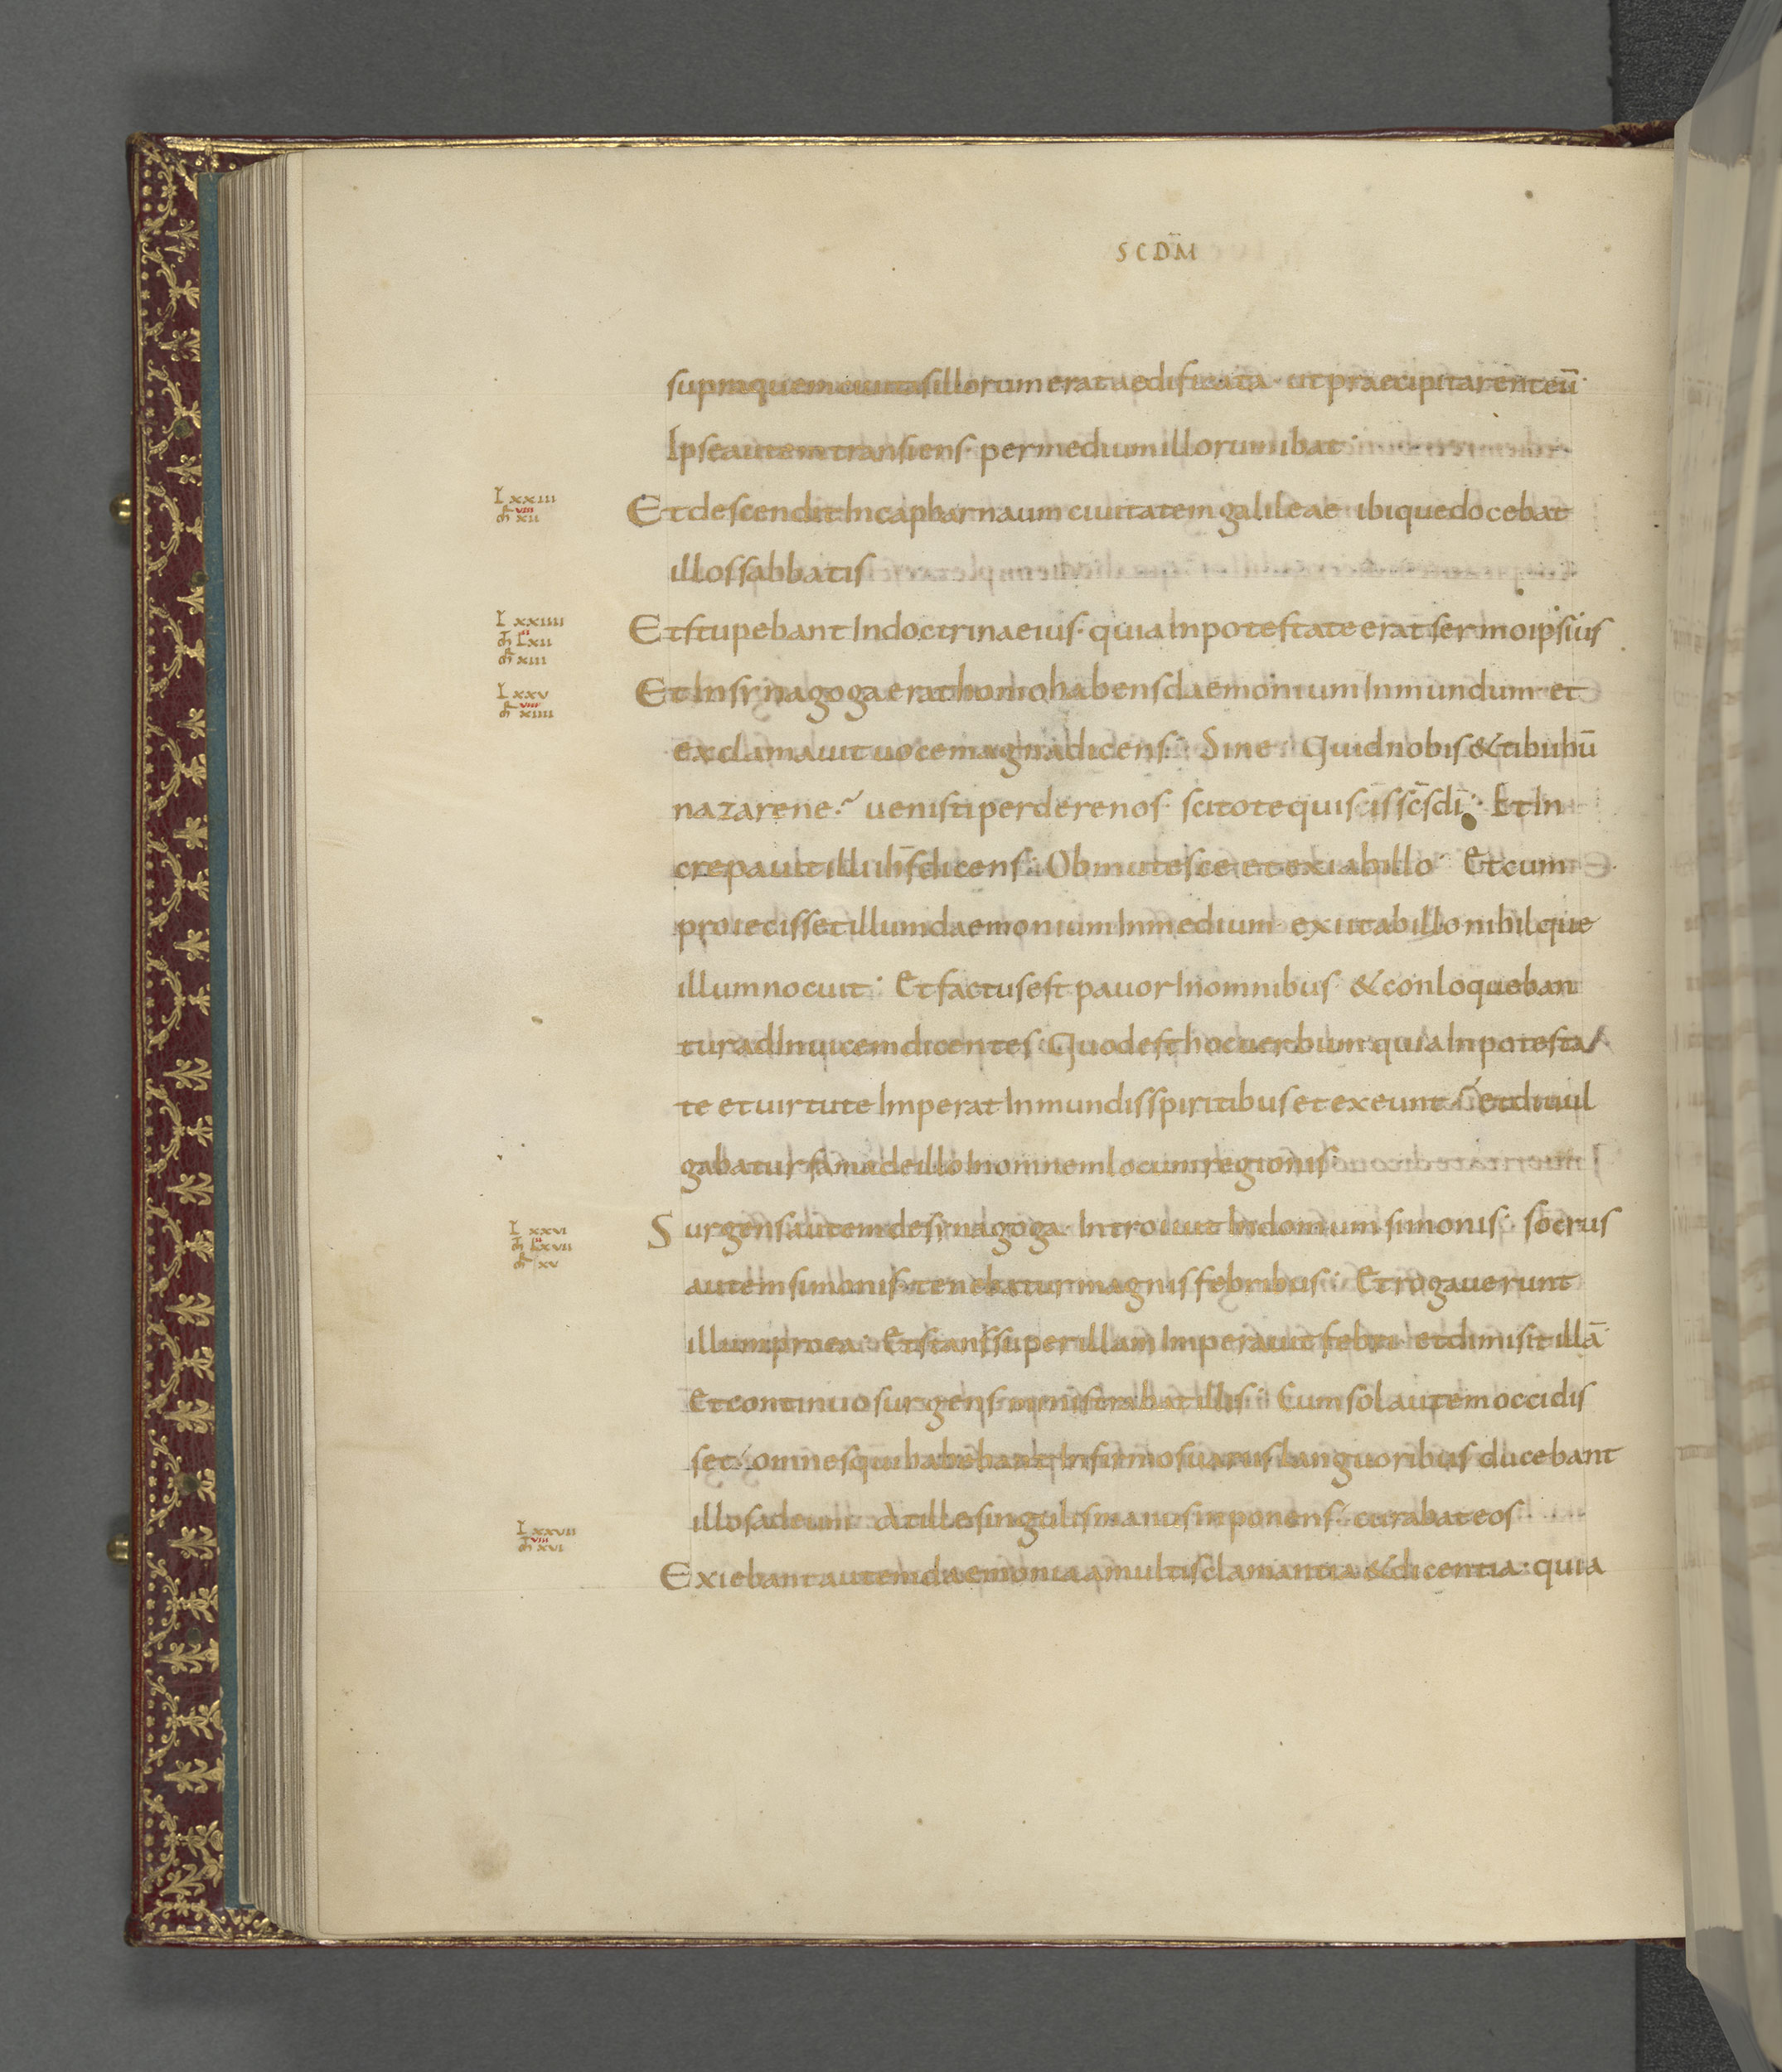 SCDM̄
supraquem ciuitas illorum erat aedificata · ut praecipitarent eū·
Ipse autem transiens · per medium illorum ibat·
L xxiii
m̄r viii xii
Et descendit In capharnaum ciuitatem galileae · ibique docebat
illos sabbatis
L xxiiii
m̄ Lxii
m̄r xiii
Et stupebant In doctrina eius · quia In potestate erat sermo ipsius
L xxv
m̄r viii xiiii
Et In synagoga erat homo habens daemonium Inmundum · et
exclamauit uoce magna dicens · Sine · Quid nobis & tibi ihū
nazarene? uenisti perdere nos · scio te qui sis sc̄s dī · Et In
crepauit illi ih̄s dicens · Obmutesce et exi ab illo · Et cum
proiecisset illum daemonium In medium · exiit ab illo nihilque
illum nocuit · Et factus est pauor In omnibus · & conloqueban
tur ad Inuicem dicentes · Quod est hoc uerbum · quia In potesta
te et uirtute Imperat Inmundis spiritibus et exeunt · et diuul
gabatur fama de illo In omnem locum regionis
L xxvi
m̄ Lxvii
m̄r xv
Surgens autem de synagoga · Introiuit In domum simonis · socrus
autem simonis · tenebatur magnis febribus · Et rogauerunt
illum pro ea · Et stans super illam Imperauit febri · et dimisit illā·
Et continuo surgens · ministrabat illis · Cum sol autem occidis
set · omnes qui habebant Infirmos uariis languoribus · ducebant
illos ad eum · At ille singulis manus inponens · curabat eos
L xxvii
m̄r viii xvi
Exiebant autem daemonia a multis clamantia & dicentia : quia